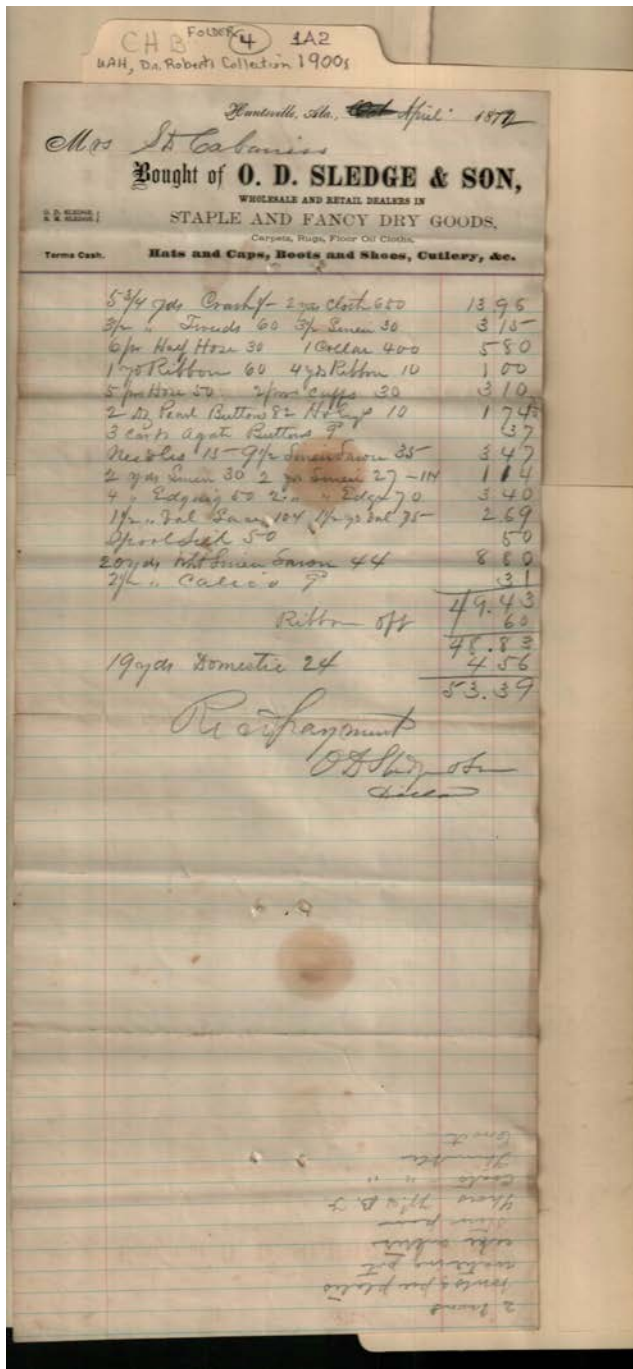 CHB FOLDER 4 1A2
UAH, Dr. Roberts Collection 1900s
Huntsville, Ala., April 1872
Mrs S D Cabaniss
Bought of O. D. SLEDGE & SON,
WHOLESALE AND RETAIL DEALERS IN
O. D. SLEDGE,
STAPLE AND FANCY DRY GOODS,
Carpets, Rugs, Floor Oil Cloths,
Terms Cash. Hats and Caps, Boots and Shoes, Cutlery, &c.
5 3/4 yds Crash 2 yds Cloth 600 13 96
3 1/2 " Tweeds 60 3 1/2 Linen 30 3 15
6 pr Half Hose 30 1 Collar 400 5 80
1 yd Ribbon 60 4 yds Ribbon 10 1 00
5 pr Hose 50 2 pr Cuffs 30 3 10
2 dz Pearl Buttons 82 10 1 74
3 cards Agate Buttons 37
Needles 15 - 9 1/2 Linen Lawn 35 3 47
2 yds Linen 30 2 yds Linen 27 1 14
4 " Edging 50 2 " " Edge 70 3 40
1 1/2 " Val 104 1 1/2 yds Val 75 2.69
Spool Silk 50 50
20 yds Wht Linen Lawn 44 8 80
2 1/2 " Calico 31
49.43
Ribbon off 60
48.83
19 yds Domestic 24 4 56
53.39
Rec'd payment
O D Sledge & Son